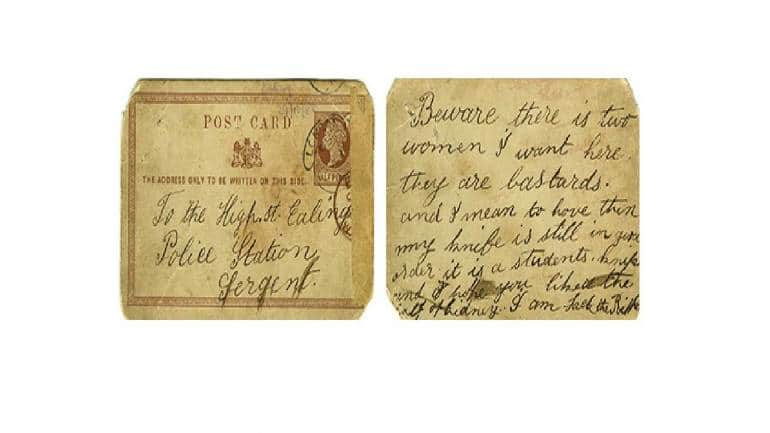 POST CARD
THE ADDRESS ONLY TO BE WRITTEN ON THIS SIDE.
To the High.st. Ealing
Police Station
Sergent.
Beware there is two
women I want here.
they are bastards.
and I mean to hove them
my knife is still in
order it is a students. knife
and I hope you liked the
half of kidney. I am Jack the